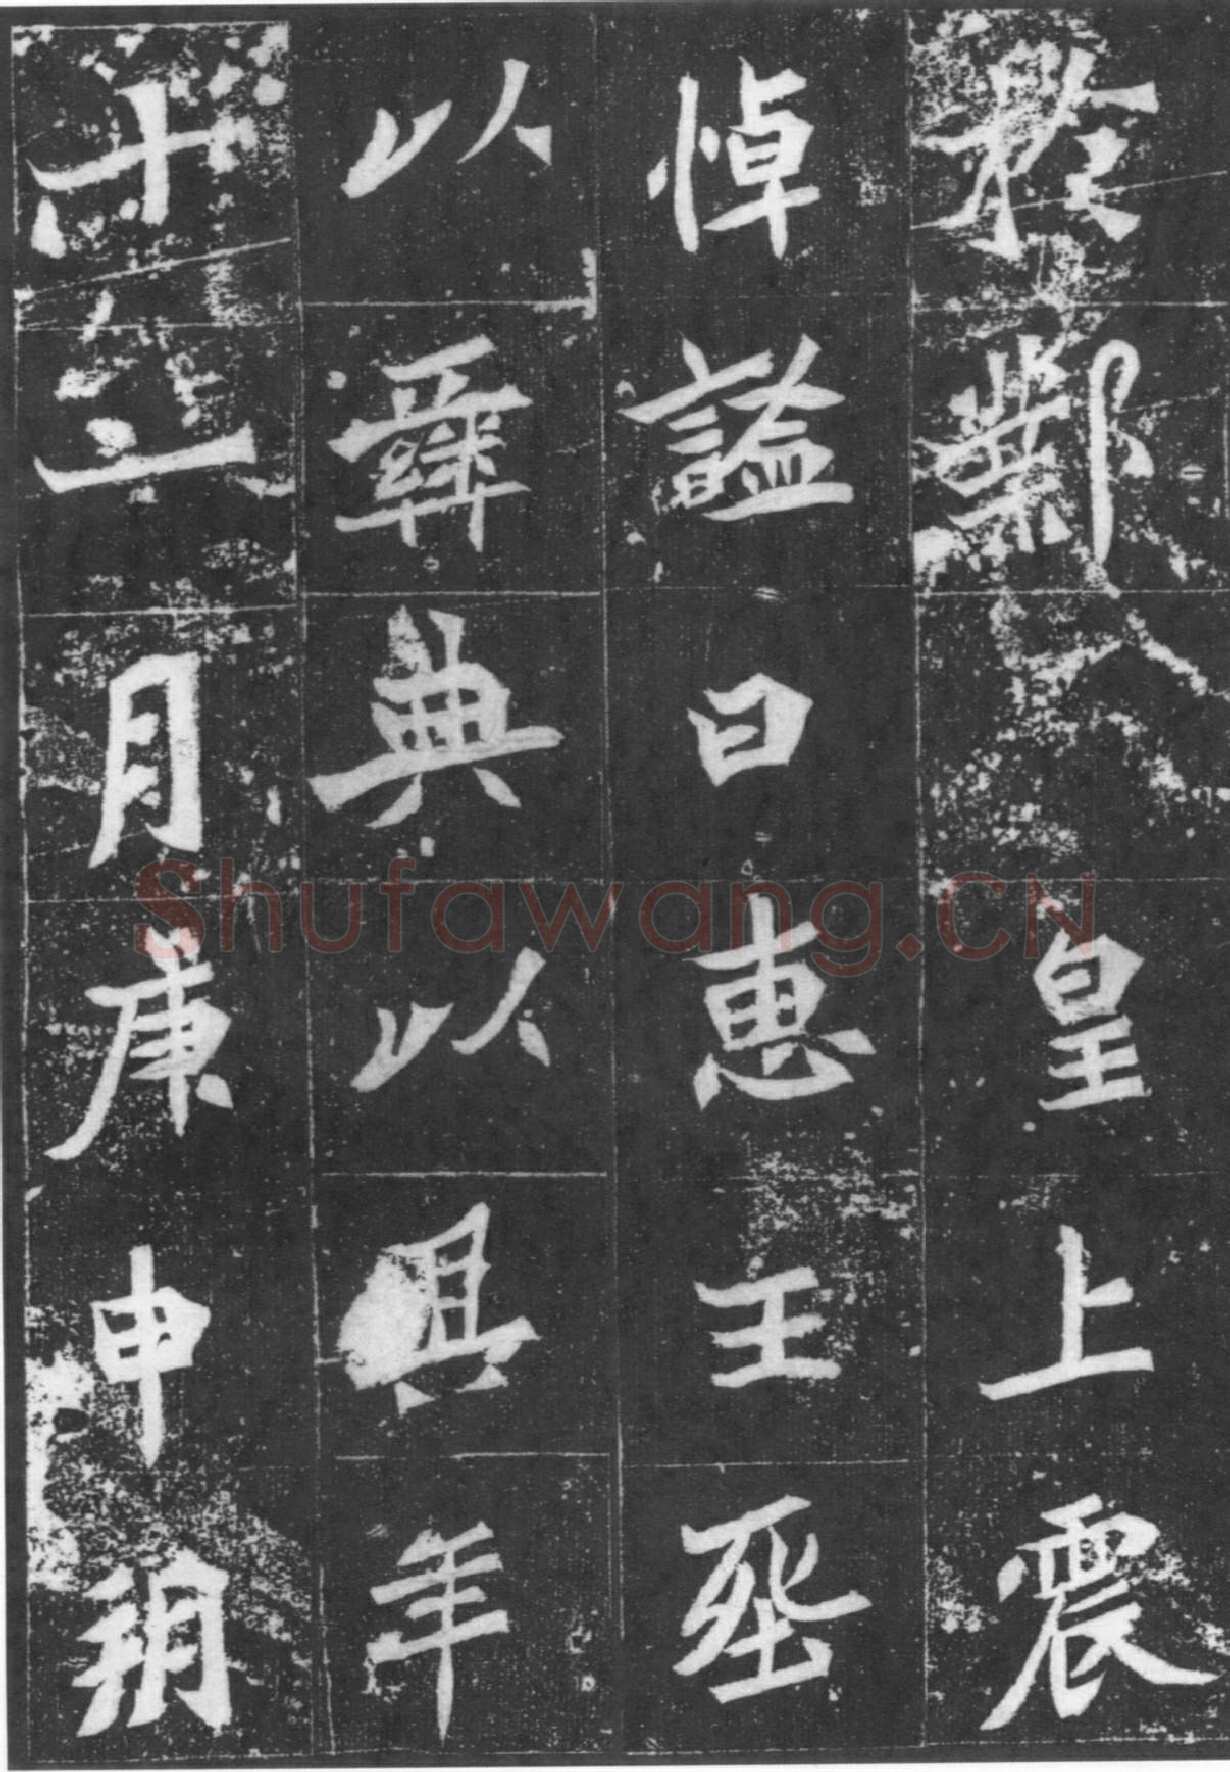 於鄴皇上震
悼謚曰惠王葬
以彝典以其年
十二月庚申朔
Shufawang.CN